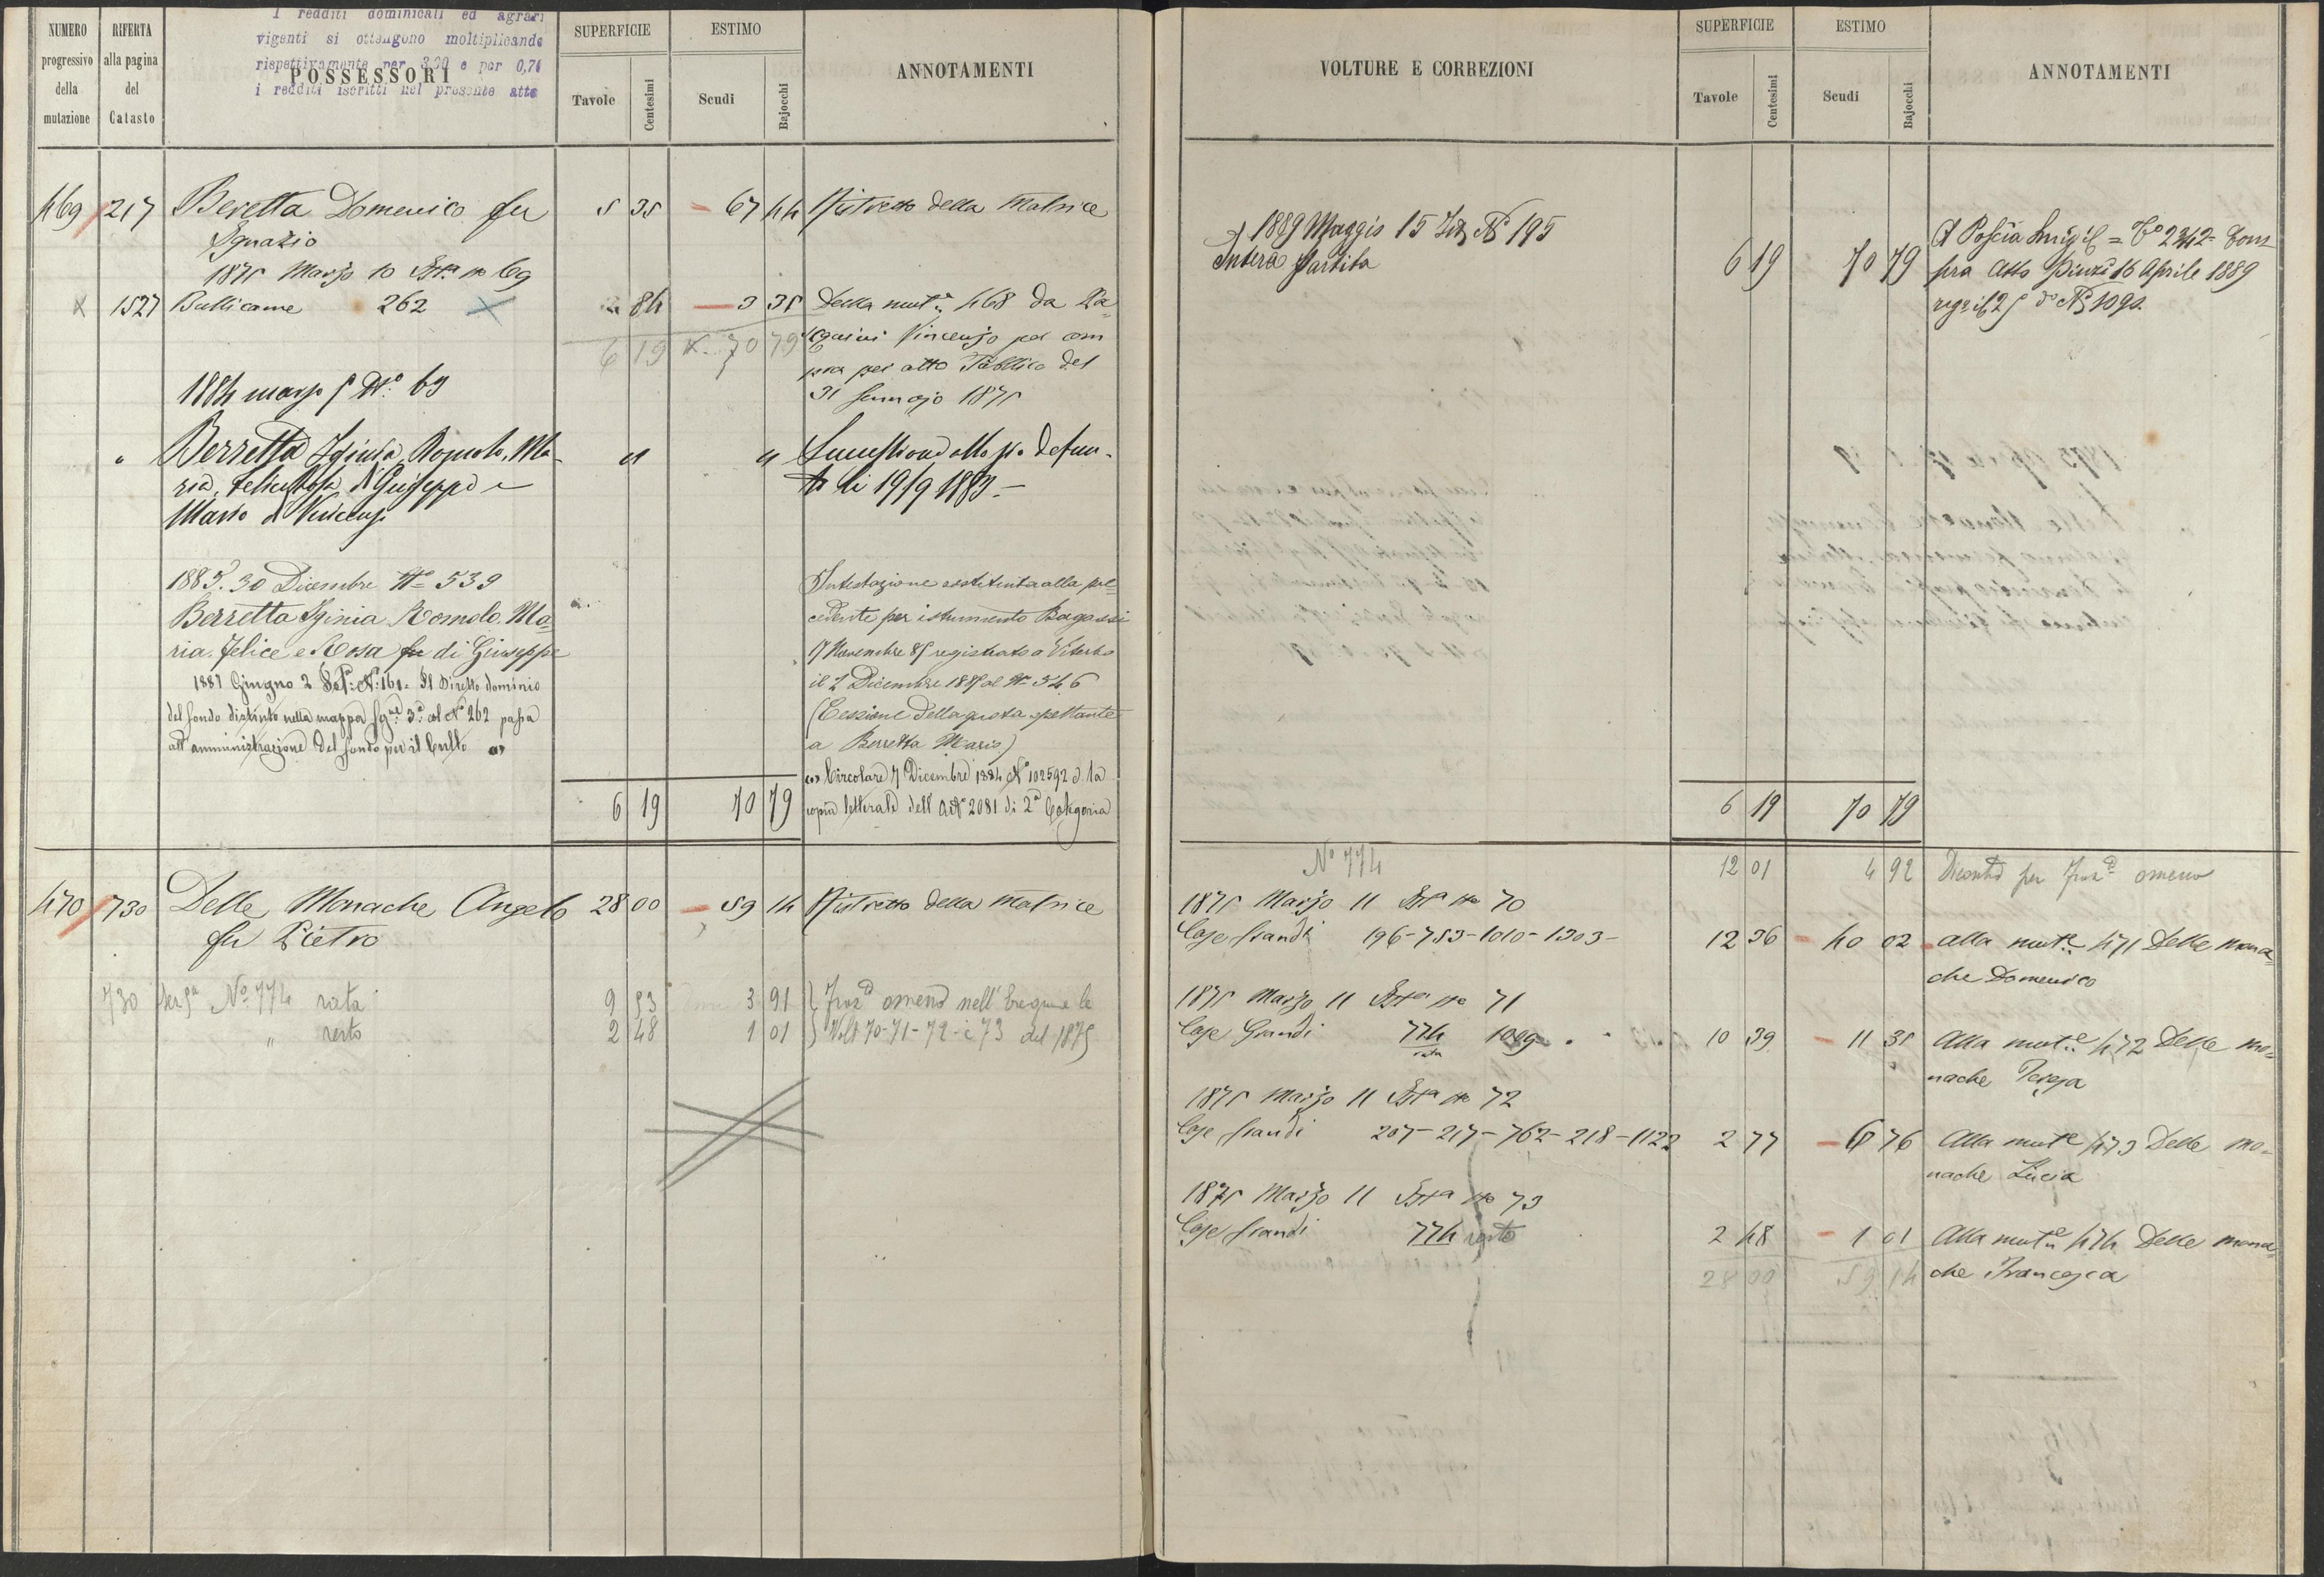 NUMERO progressivo della mutazione
RIFERTA alla pagina del Catasto
I redditi dominicali ed agrari
vigenti si ottengono moltiplicando
rispettivamente per 3,90 e per 0,71
i redditi iscritti nel presente atto
POSSESSORI
SUPERFICIE
Tavole
Centesimi
ESTIMO
Scudi
Bajocchi
ANNOTAMENTI
469 217 Beretta Domenico fu 5 35 67 44 Ristretto della Matrice
Ignazio
1875 Marzo 10 No 69
1527 Bullicame 262 84 3 35 Dalla mut.e 468 da Pa=
6 19 70 79 Vincenzo per com
pra per atto Pubblico del
31 Gennajo 1875
1884 marzo 5 No. 69
Berretta Iginia, Romolo, Ma- " "
ria, Felice, Rosa di Giuseppe e
Mario di Vincenzo
Successione allo zio defun-
to li 19/9 1883.-
1885. 30 Dicembre No 539
Berretta Iginia Romolo. Ma=
ria. Felice e Rosa fu di Giuseppe
1887 Giugno 2 No: 161= Il Diretto dominio
del fondo distinto nella mappa 3a col No 262 passa
all'amministrazione del fondo per il Culto (1)
Intestazione sostituita alla pre=
cedente per istrumento Bagassi
17 Novembre 85 registrato a Viterbo
il 2 Dicembre 1885 al No 546
(Cessione della quota spettante
a Berretta Mario)
(1) Circolare 7 Dicembre 1884 No 102592 e la
copia letterale dell'Art. 2081 di 2a Categoria
6 19 70 79
470 730 Delle Monache Angelo 28 00 59 14 Ristretto della Matrice
fu Pietro
730 No 774 rata 9 53 3 91 omend nell'Eseguire le
" resto 2 48 1 01 Volt 70-71-72-e 73 del 1875
VOLTURE E CORREZIONI
SUPERFICIE
Tavole
Centesimi
ESTIMO
Scudi
Bajocchi
ANNOTAMENTI
1889 Maggio 15 No 195
Intera Partita 6 19 70 79
A Poscia Luigi = Co 2342= Com
pra Atto Pinzi 16 Aprile 1889
No 1090.
6 19 70 79
No 774 12 01 4 92
1875 Marzo 11 No 70
Case Grandi 196-753-1010-1303- 12 36 40 02 alla mut.e 471 Delle mona=
che Domenico
1875 Marzo 11 No 71
Case Grandi 774 rata 1009 10 39 11 35 Alla mut.e 472 Delle mo=
nache Teresa
1875 Marzo 11 No 72
Case Grandi 207-217-762-218-1122 2 77 6 76 Alla mut.e 473 Delle mo=
nache Lucia
1875 Marzo 11 No 73
Case Grandi 774 resto 2 48 1 01 Alla mut.e 474 Delle mona=
28 00 59 14 che Francesca